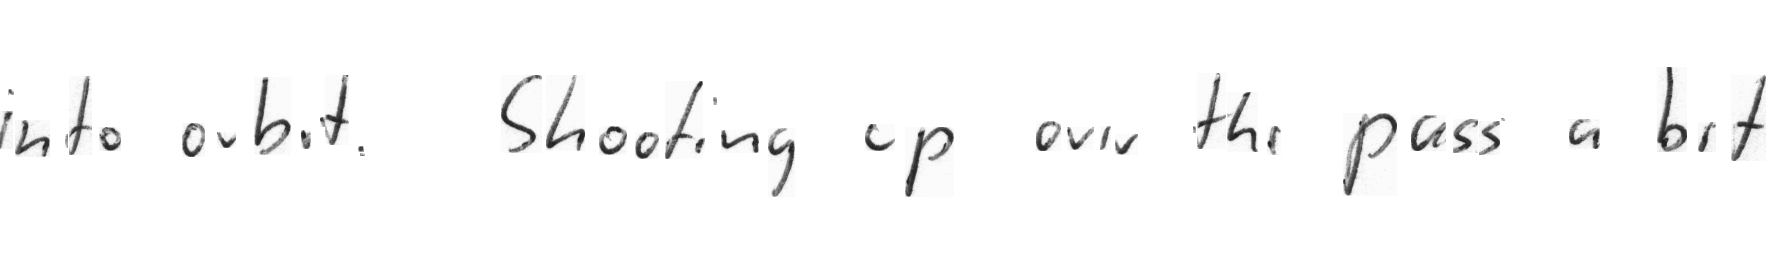 into orbit. Shooting up over the pass a bit